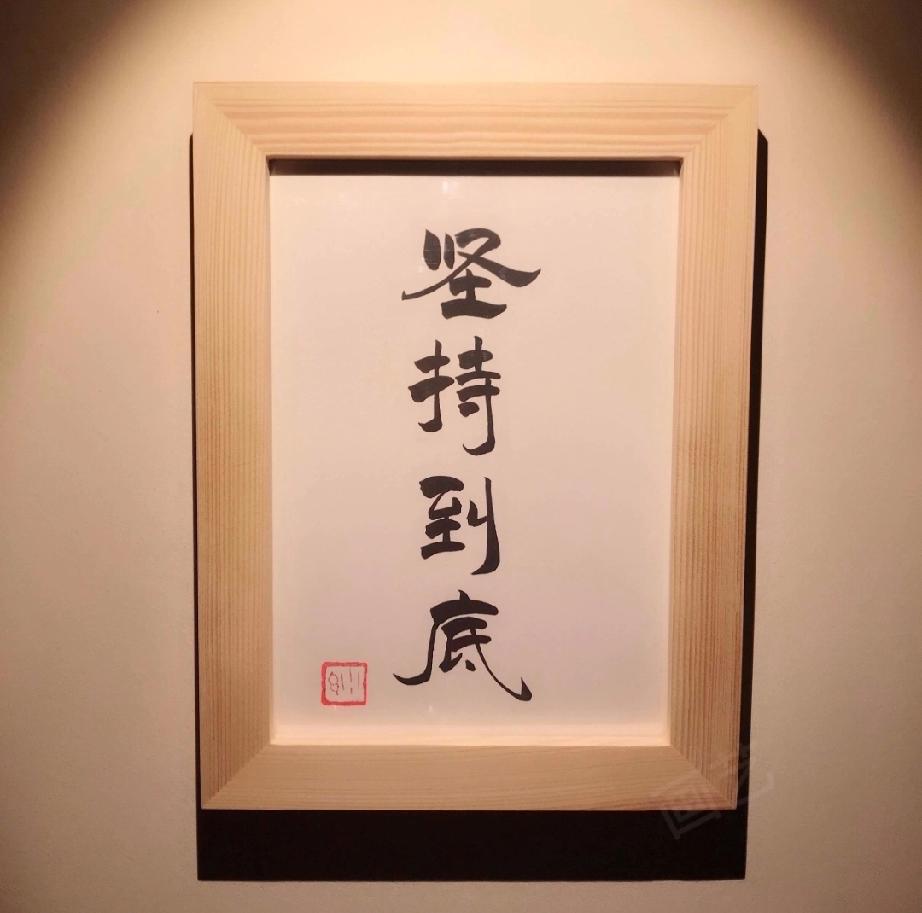 坚持到底